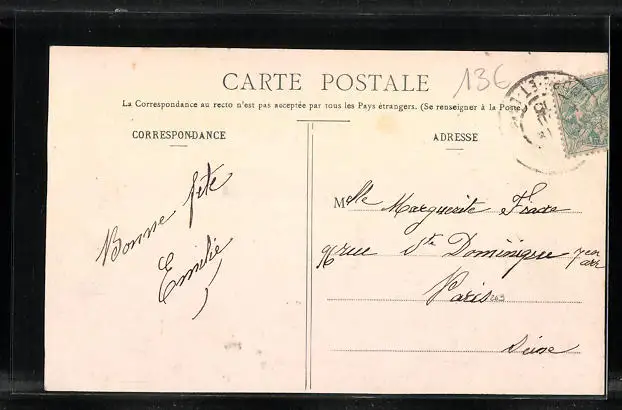 CARTE POSTALE
136
La Correspondance au recto n'est pas acceptée par tous les Pays étrangers. (Se renseigner à la Poste.)
CORRESPONDANCE
ADRESSE
Bonne fête
Emilie
Mlle Marguerite
96 rue Ste Dominique 7em arr
Paris
Seine